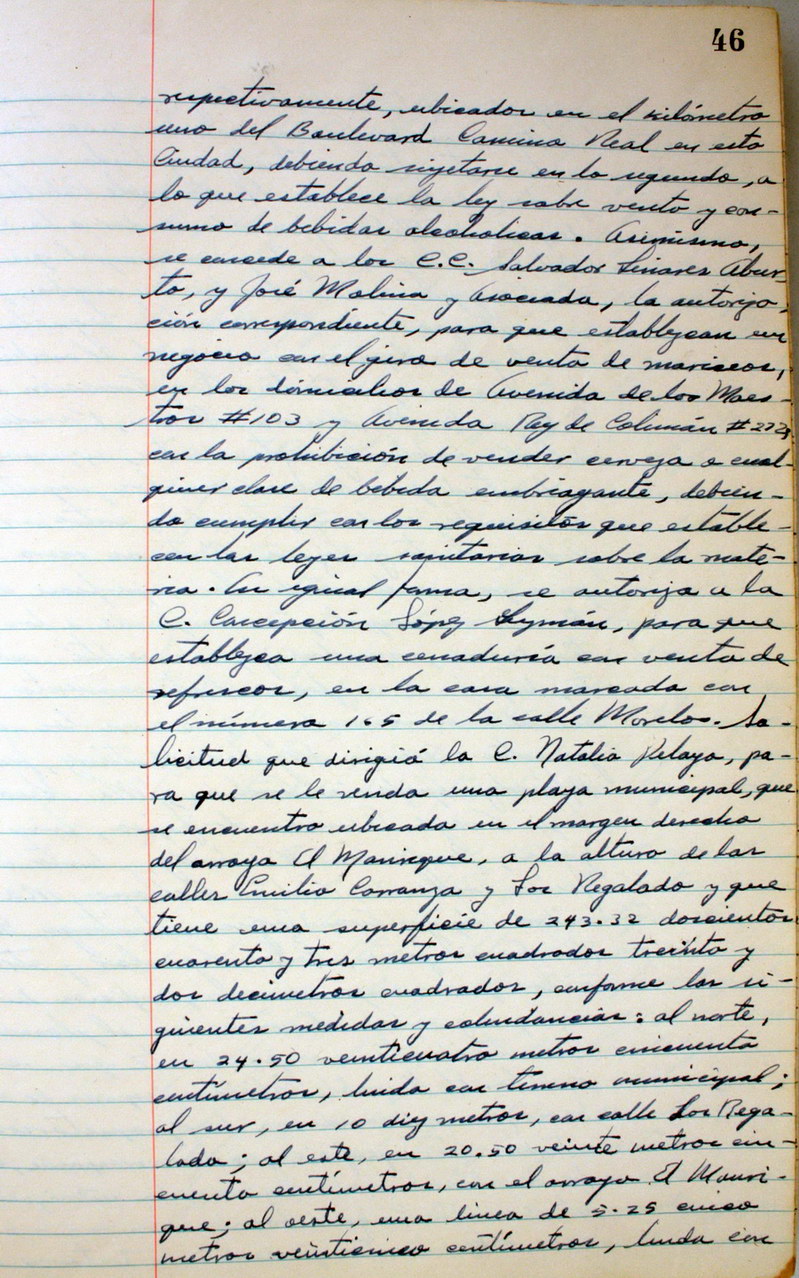 46
respectivamente, ubicados en el kilómetro
uno del Boulevard Camino Real en esta
Ciudad, debiendo sujetarse en lo segundo, a
lo que establece la ley sobre venta y con-
sumo de bebidas alcoholicas. Asimismo,
se concede a los C.C. Salvador Linares Abur-
to, y José Molina y Asociada, la autoriza-
ción correspondiente, para que establezcan un
negocio con el giro de venta de mariscos,
en los domicilios de Avenida de los Maes-
tros #103 y Avenida Rey de Colimán
con la prohibición de vender cerveza o cual-
quier clase de bebida embriagante, debien-
do cumplir con los requisitos que estable-
cen las leyes sanitarias sobre la mate-
ria. En igual forma, se autoriza a la
C. Concepción López Guzmán, para que
establezca una cenaduría con venta de
refrescos, en la casa marcada con
el número 165 de la calle Morelos. So-
licitud que dirigió la C. Natalia Pelayo, pa-
ra que se le venda una playa municipal, que
se encuentra ubicada en el margen derecho
del arroyo El Manrique, a la altura de las
calles Emilio Carranza y Los Regalado y que
tiene una superficie de 243.32 doscientos
cuarenta y tres metros cuadrados treinta y
dos decimetros cuadrados, conforme las si-
guientes medidas y colindancias: al norte,
en 24.50 veinticuatro metros cincuenta
centímetros, linda con terreno municipal;
al sur, en 10 diez metros, con calle Los Rega-
lado; al este, en 20.50 veinte metros cin-
cuenta centímetros, con el arroyo El Manri-
que; al oeste, una linea de 5.25 cinco
metros veinticinco centímetros, linda con